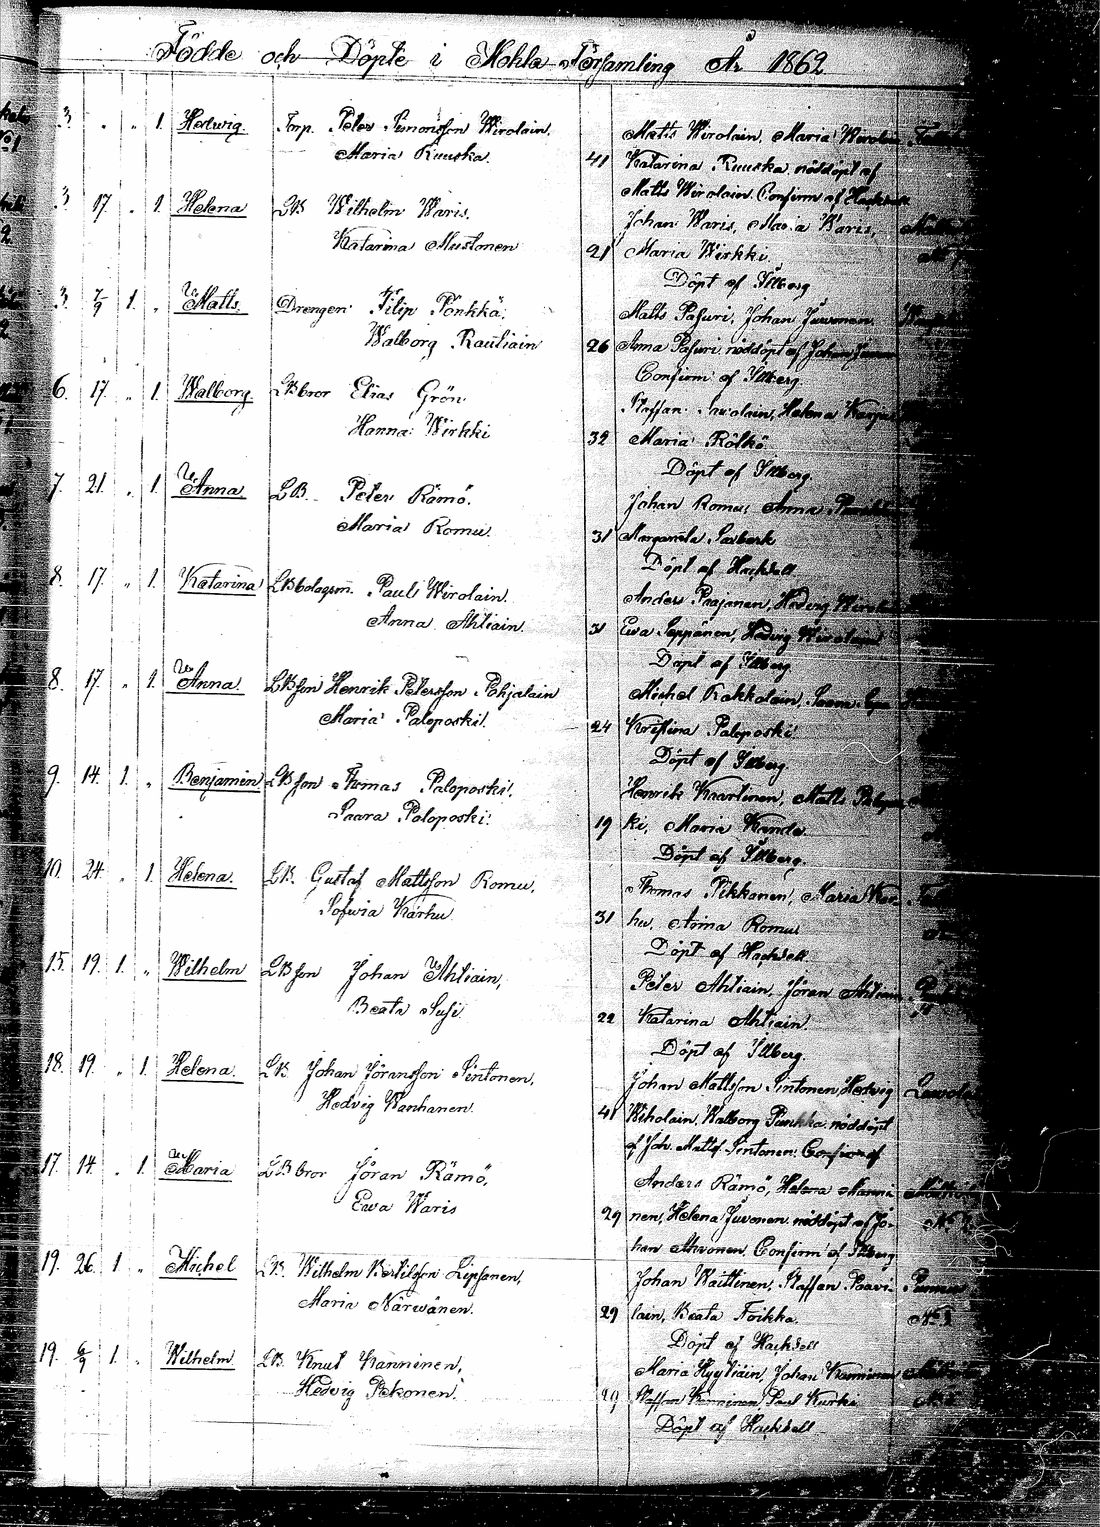 Födde och Döpte i Mohla Församling År 1862
3. " " 1. Hedwig. Torp. Peter Simonsson Wirolain,
Maria Ruuska. 41
Matts Wirolain, Maria Wirolain
Katarina Ruuska nöddöpt af
Matts Wirolain. Confirm af Hackzell
3. 17. " 1. Helena LB Wilhelm Waris.
Katarina Mustonen 21
Johan Waris, Maria Waris,
Maria Wirkki.
Döpt af Illberg
3. 7/9 1. " Matts. Drengen Filip Pönkkä.
Walborg Rautiain 26
Matts Pasuri, Johan Juvonen
Anna Pasuri nöddöpt af Johan
Confirm: af Illberg.
6. 17. " 1. Walborg. LBbror Elias Grön
Hanna Wirkki 32
Staffan Helena
Maria Rölkö
Döpt af Illberg.
7. 21. " 1. Anna LB. Peter Rämö.
Maria Romu. 31
Johan Romu, Anna
Margareta
Döpt af Hackzell.
8. 17. " 1. Katarina LBbolagsm. Paul Wirolain.
Anna Ahtiain. 31
Anders Paajanen, Hedvig
Ewa Seppänen, Hedvig Wirolain
Döpt af Illberg
8. 17. " 1. Anna. LBson Henrik Petersson Pohjalain
Maria Paloposki. 24
Michel Kakkolain, Saara
Kristina Paloposki.
Döpt af Illberg.
9. 14. 1. " Benjamin LBson Thomas Paloposki,
Saara Paloposki. 19
Henrik Kaartinen, Matts Palopos
ki, Maria Kanda.
Döpt af Illberg.
10. 24. " 1. Helena. LB. Gustaf Mattsson Romu,
Sofwia Karhu 31
Thomas Pikkanen, Maria Kar
hu, Anna Romu
Döpt af Hackzell
15. 19. 1. " Wilhelm LBson Johan Ahtiain,
Beata Susi 22
Peter Ahtiain, Jöran Ahtiain
Katarina Ahtiain.
Döpt af Illberg.
18. 19. " 1. Helena. LB. Johan Jöransson Sintonen,
Hedvig Wanhanen. 41
Johan Mattsson Sintonen, Hedvig
Wiholain, Walborg nöddöpt
af Joh. Matts. Sintonen. Confirm af
17. 14. " 1. Maria LB bror Jöran Rämö,
Ewa Waris 29
Anders Rämö, Helena Manni
nen, Helena Juvonen nöddöpt af Jo-
han Confirm af Illberg
19. 26. 1 " Michel LB. Wilhelm Bertilsson Lipsanen,
Maria Närwänen. 29
Johan Waittinen, Staffan Paavi
lain, Beata Toikka.
Döpt af Hackzell
19. 6/9 1. " Wilhelm LB. Knut Kanninen,
Hedvig Pekonen. 29
Maria Hyytiäin, Johan Kanninen
Staffan Kanninen, Paul Kurki
Döpt af Hackzell